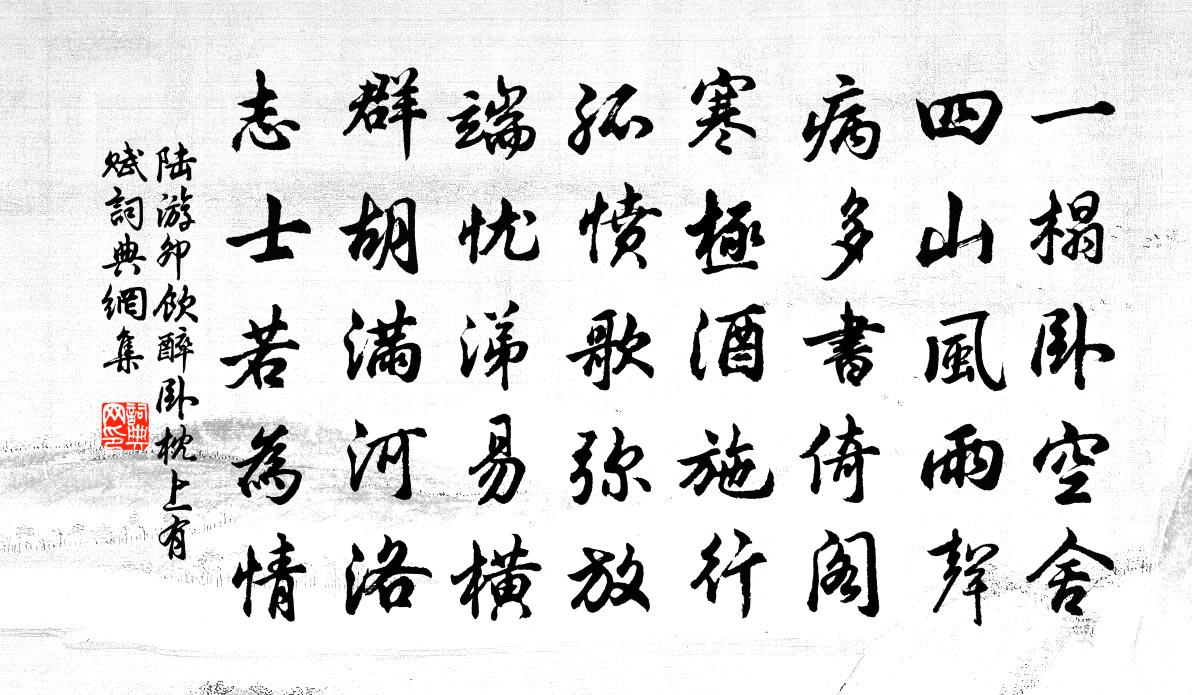 一榻卧空舍
四山風雨聲
病多書倚阁
寒極酒施行
孤愤歌弥放
端忧涕易横
群胡满河洛
志士若為情
陆游卯飲醉卧枕上有
赋詞典網集
詞典
网印